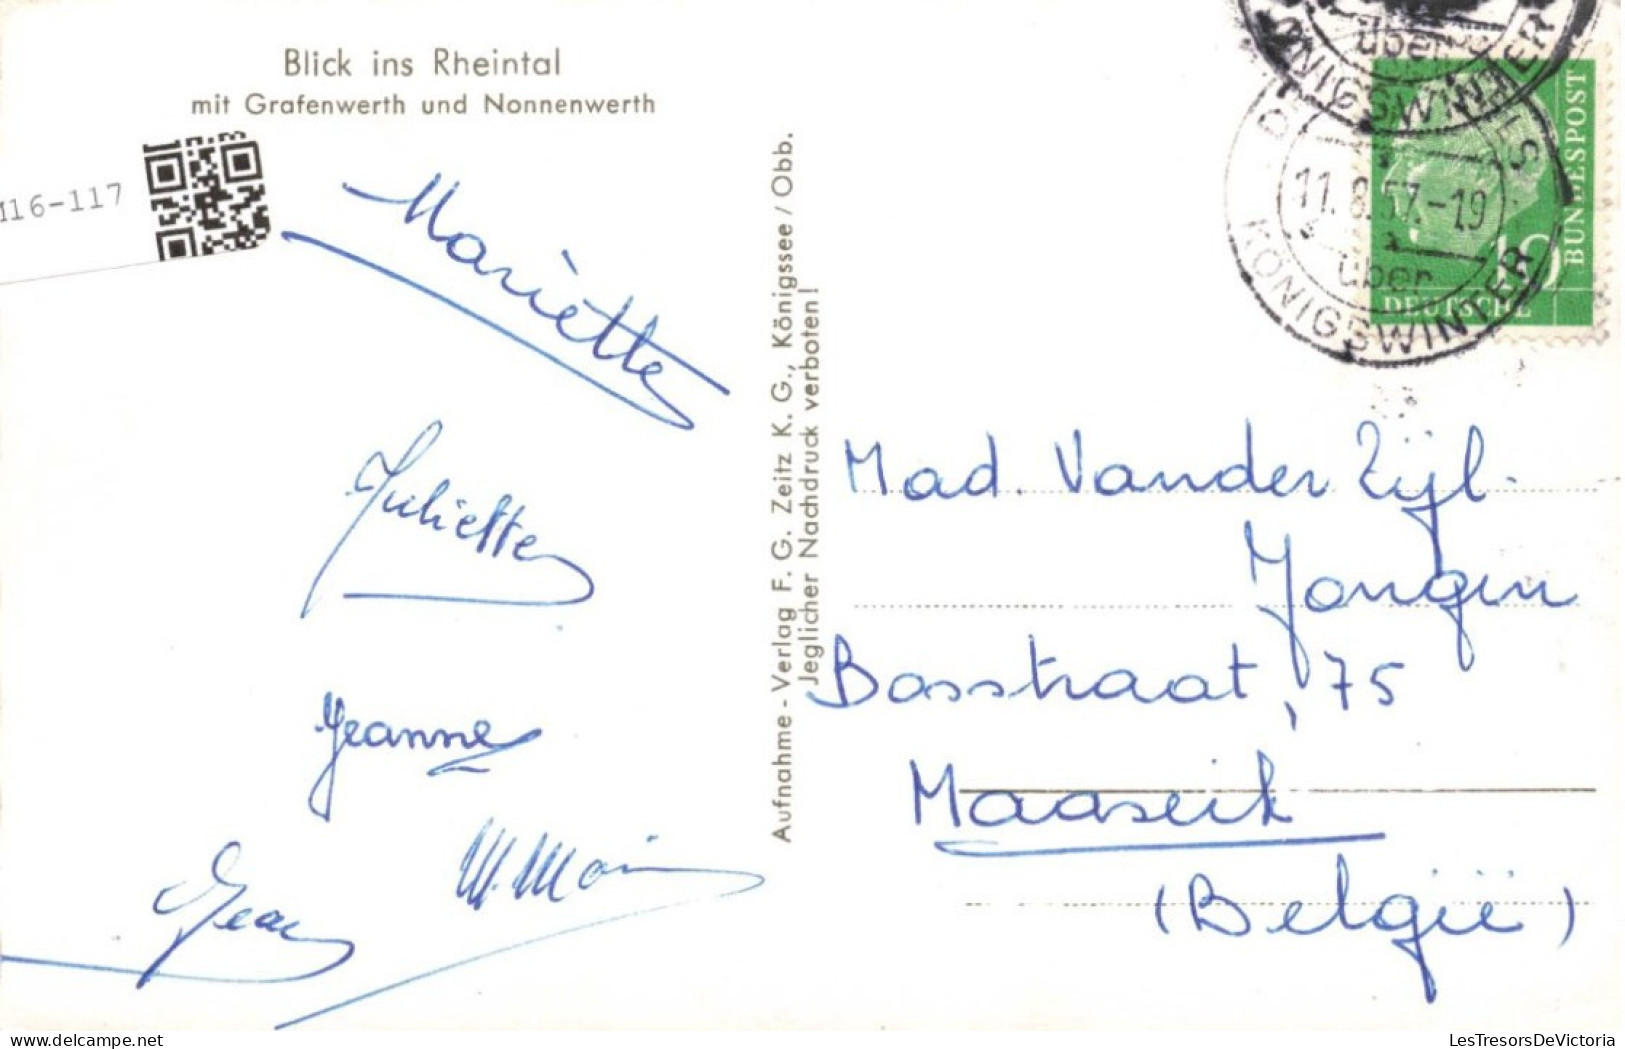 Blick ins Rheintal
mit Grafenwerth und Nonnenwerth
M16-117
Mariette
Juliette
Jeanne
Jean
Aufnahme-Verlag F. G. Zeitz K. G., Königssee/Obb.
Jeglicher Nachdruck verboten!
über
KÖNIGSWINTER
11.8.57.-19
über
KÖNIGSWINTER
DEUTSCHE
BUNDESPOST
10
Mad. Vander Zijl-
Jongen
Bosstraat, 75
Maaseik
(België)
LesTresorsDeVictoria